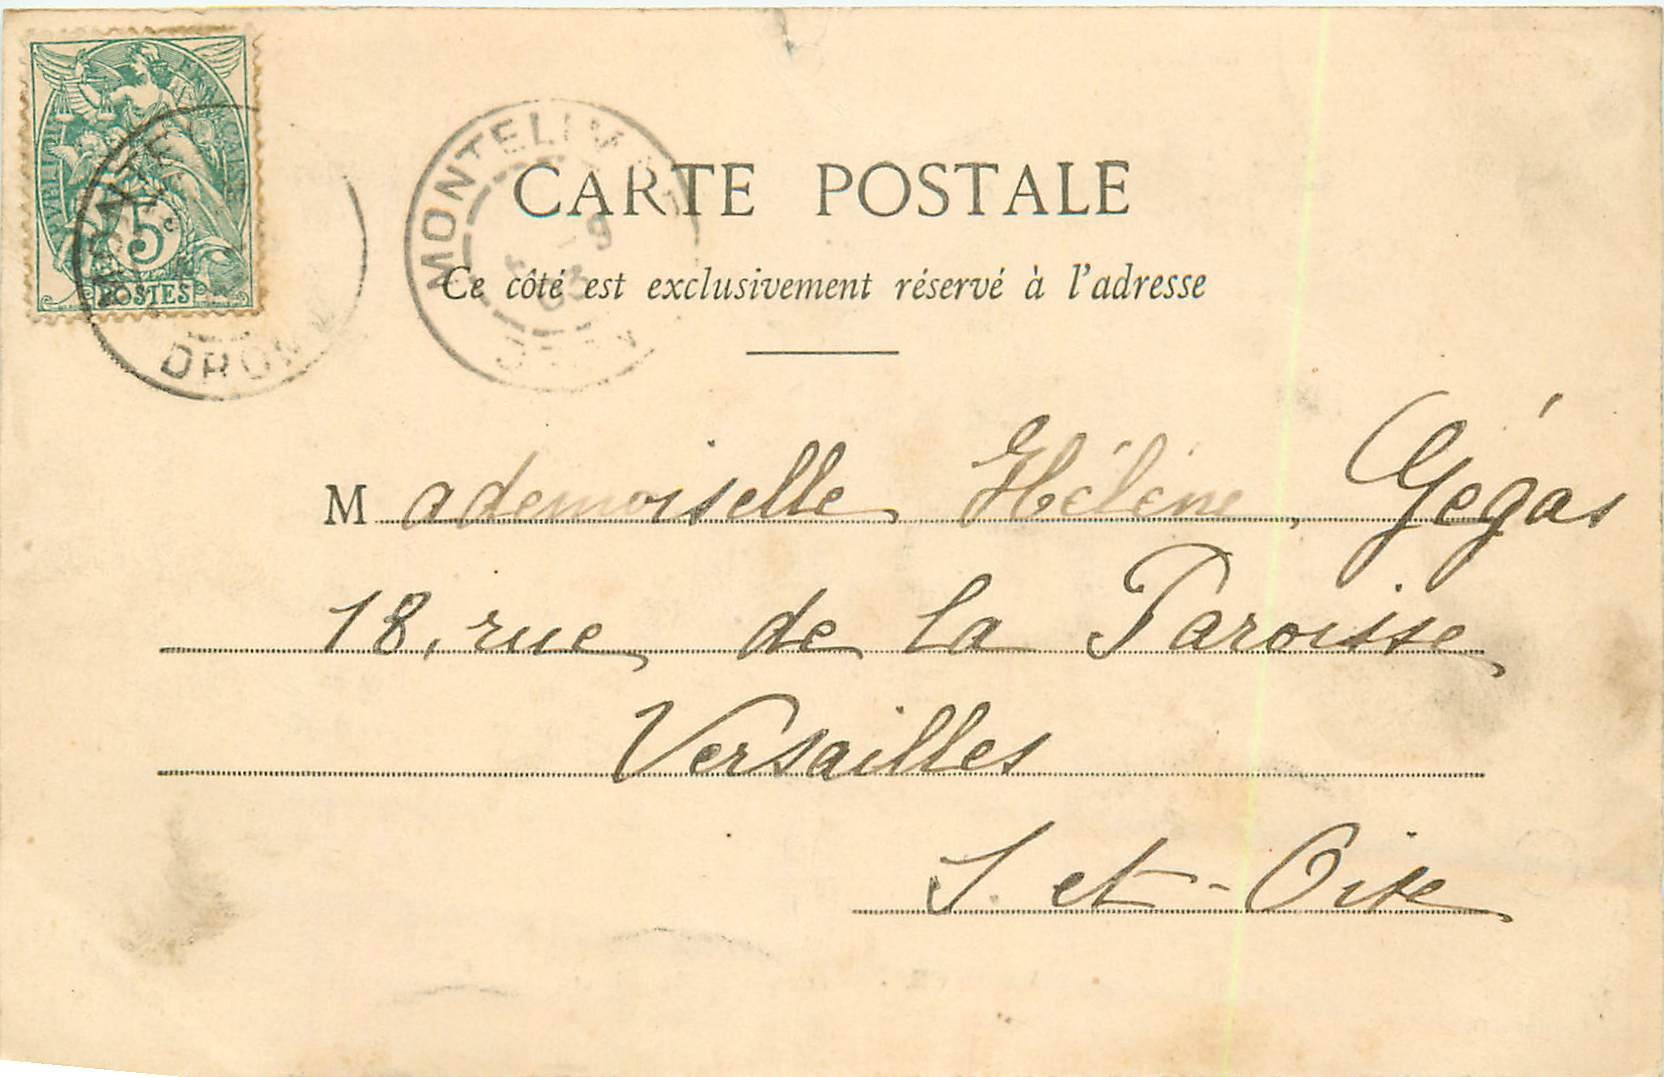 5c
POSTES
MONTELIM
DROM
CARTE POSTALE
Ce côté est exclusivement réservé à l'adresse
Mademoiselle Hélène Gégas
18, rue de la Paroisse
Versailles
S. et-Oise